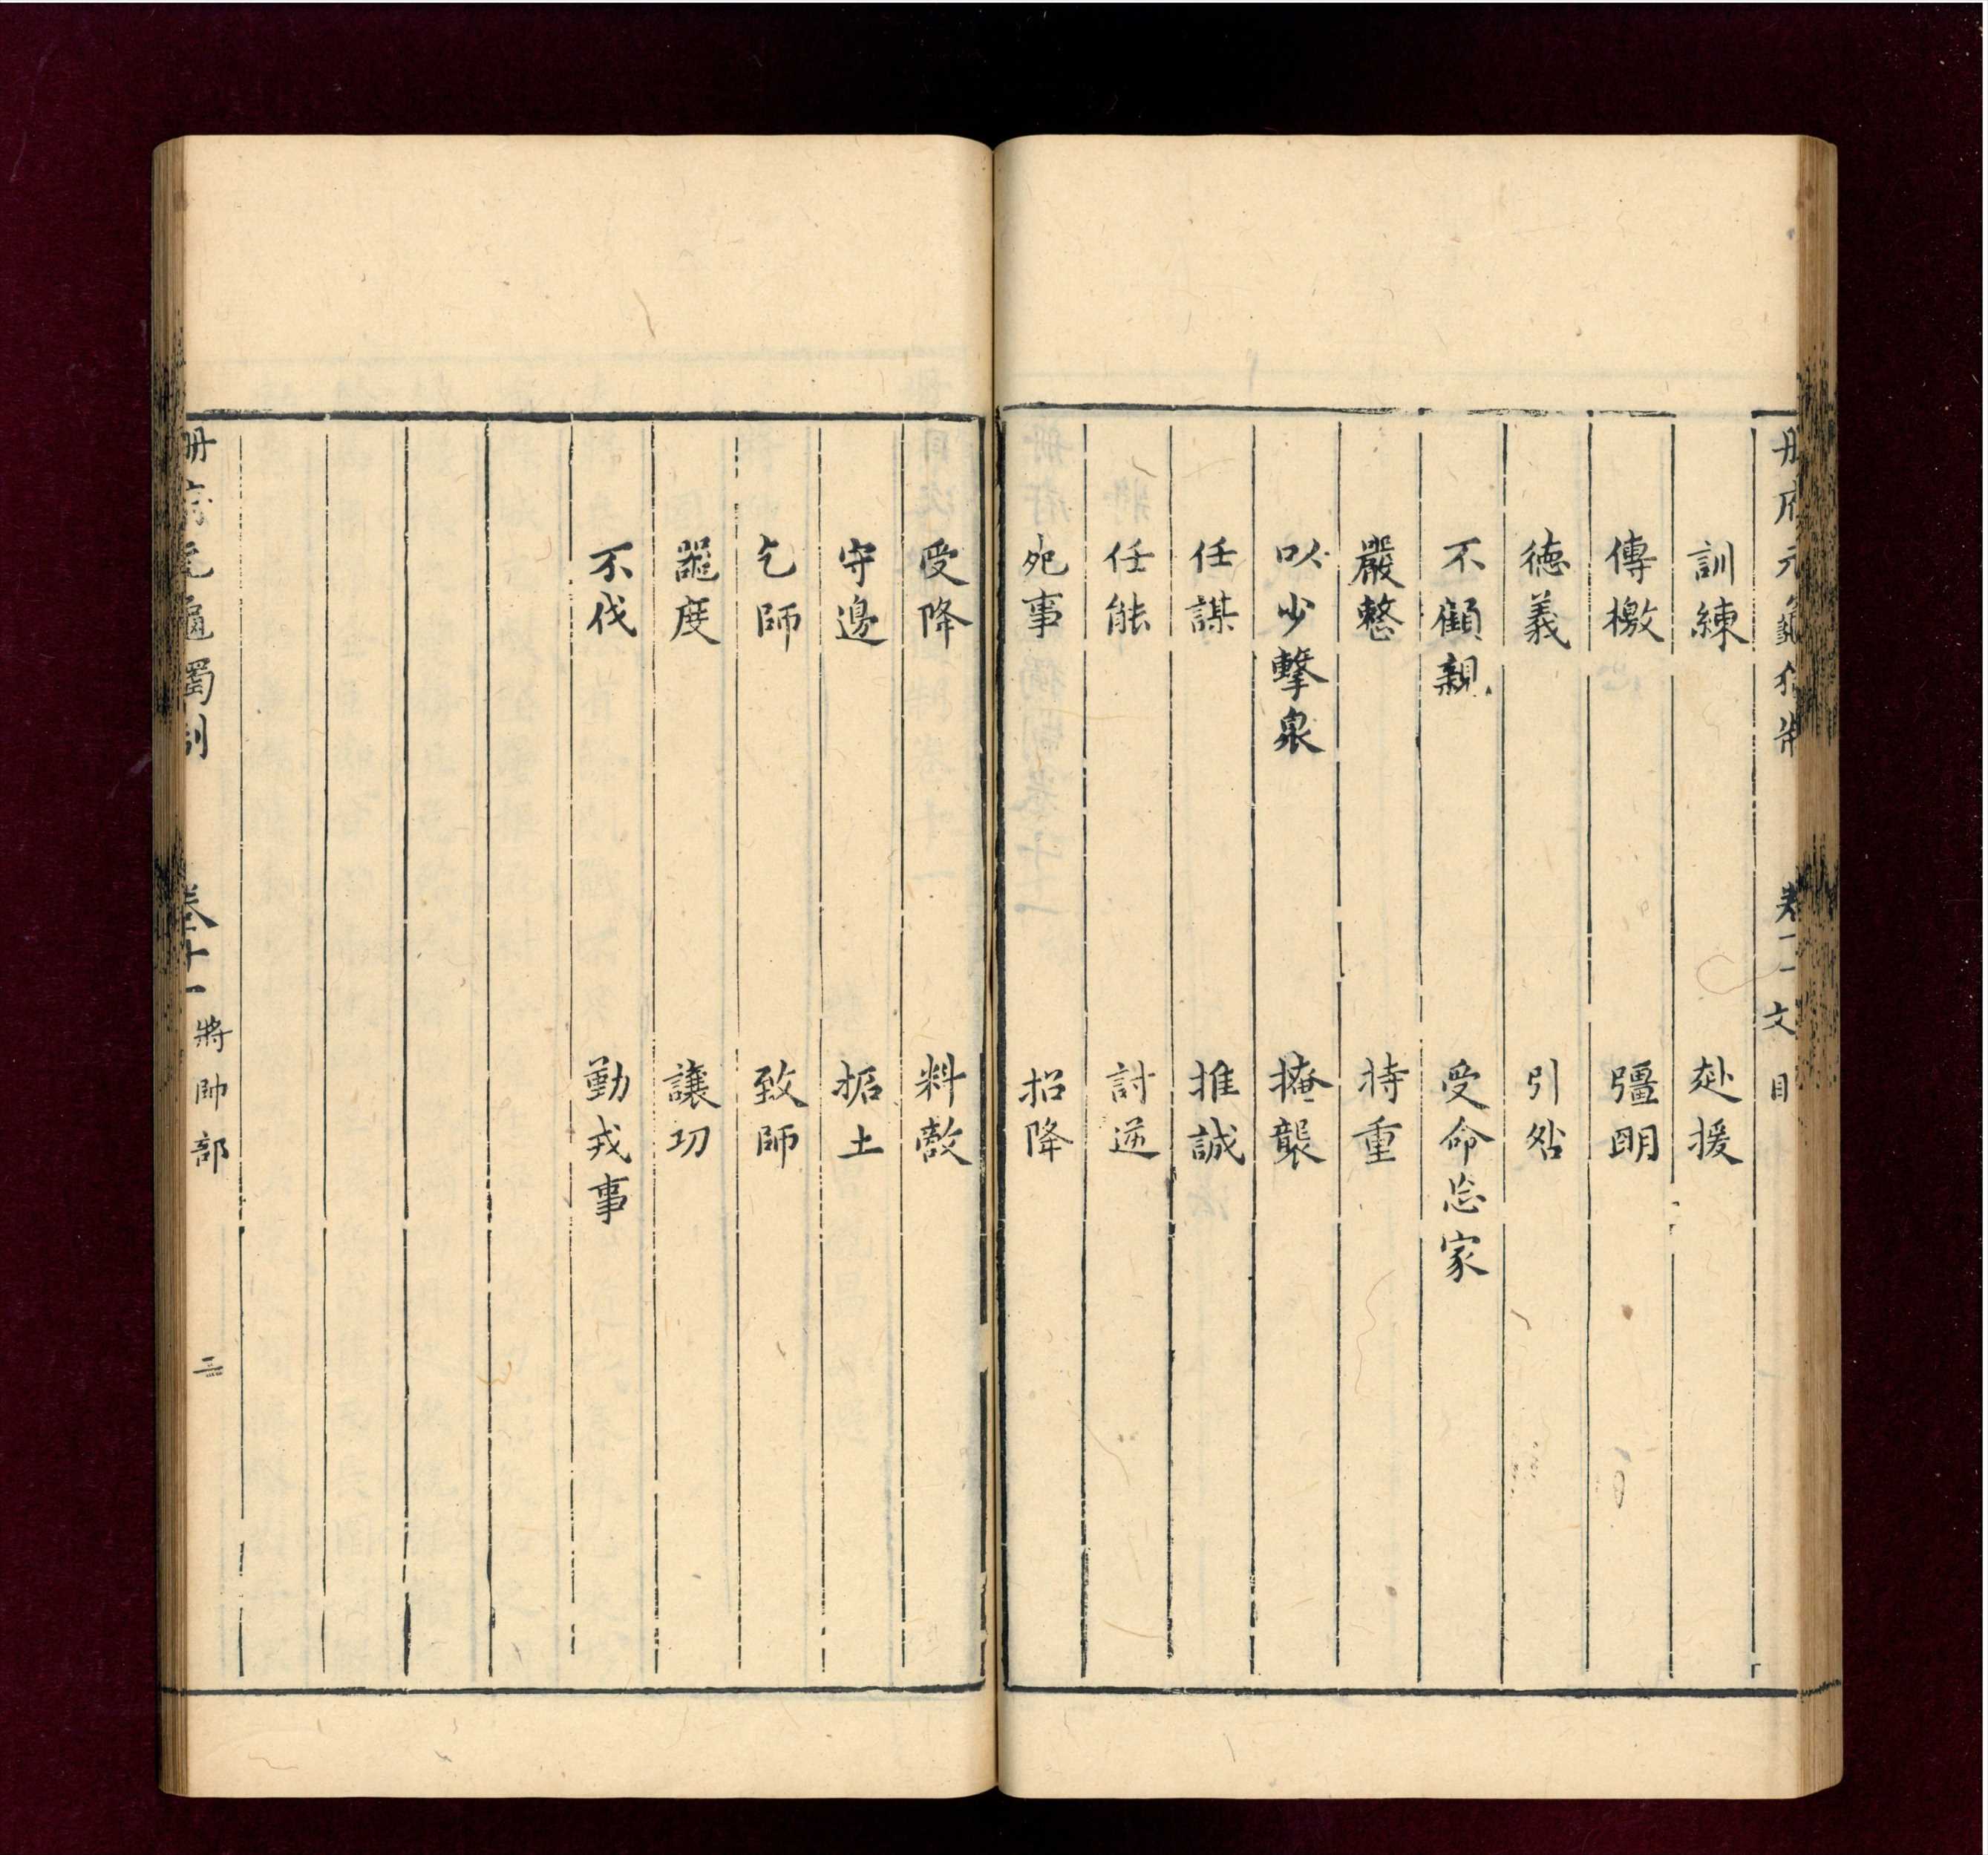 訓練　赴援
傳檄　彊明
德義　引咎
不顧親　受命忘家
嚴整　持重
以少擊衆　掩襲
任謀　推誠
任能　討逆
死事　招降
受降　料敵
守邊　拓土
乞師　致師
器度　讓功
不伐　勤戎事
冊府元龜獨制　卷十一　將帥部　三